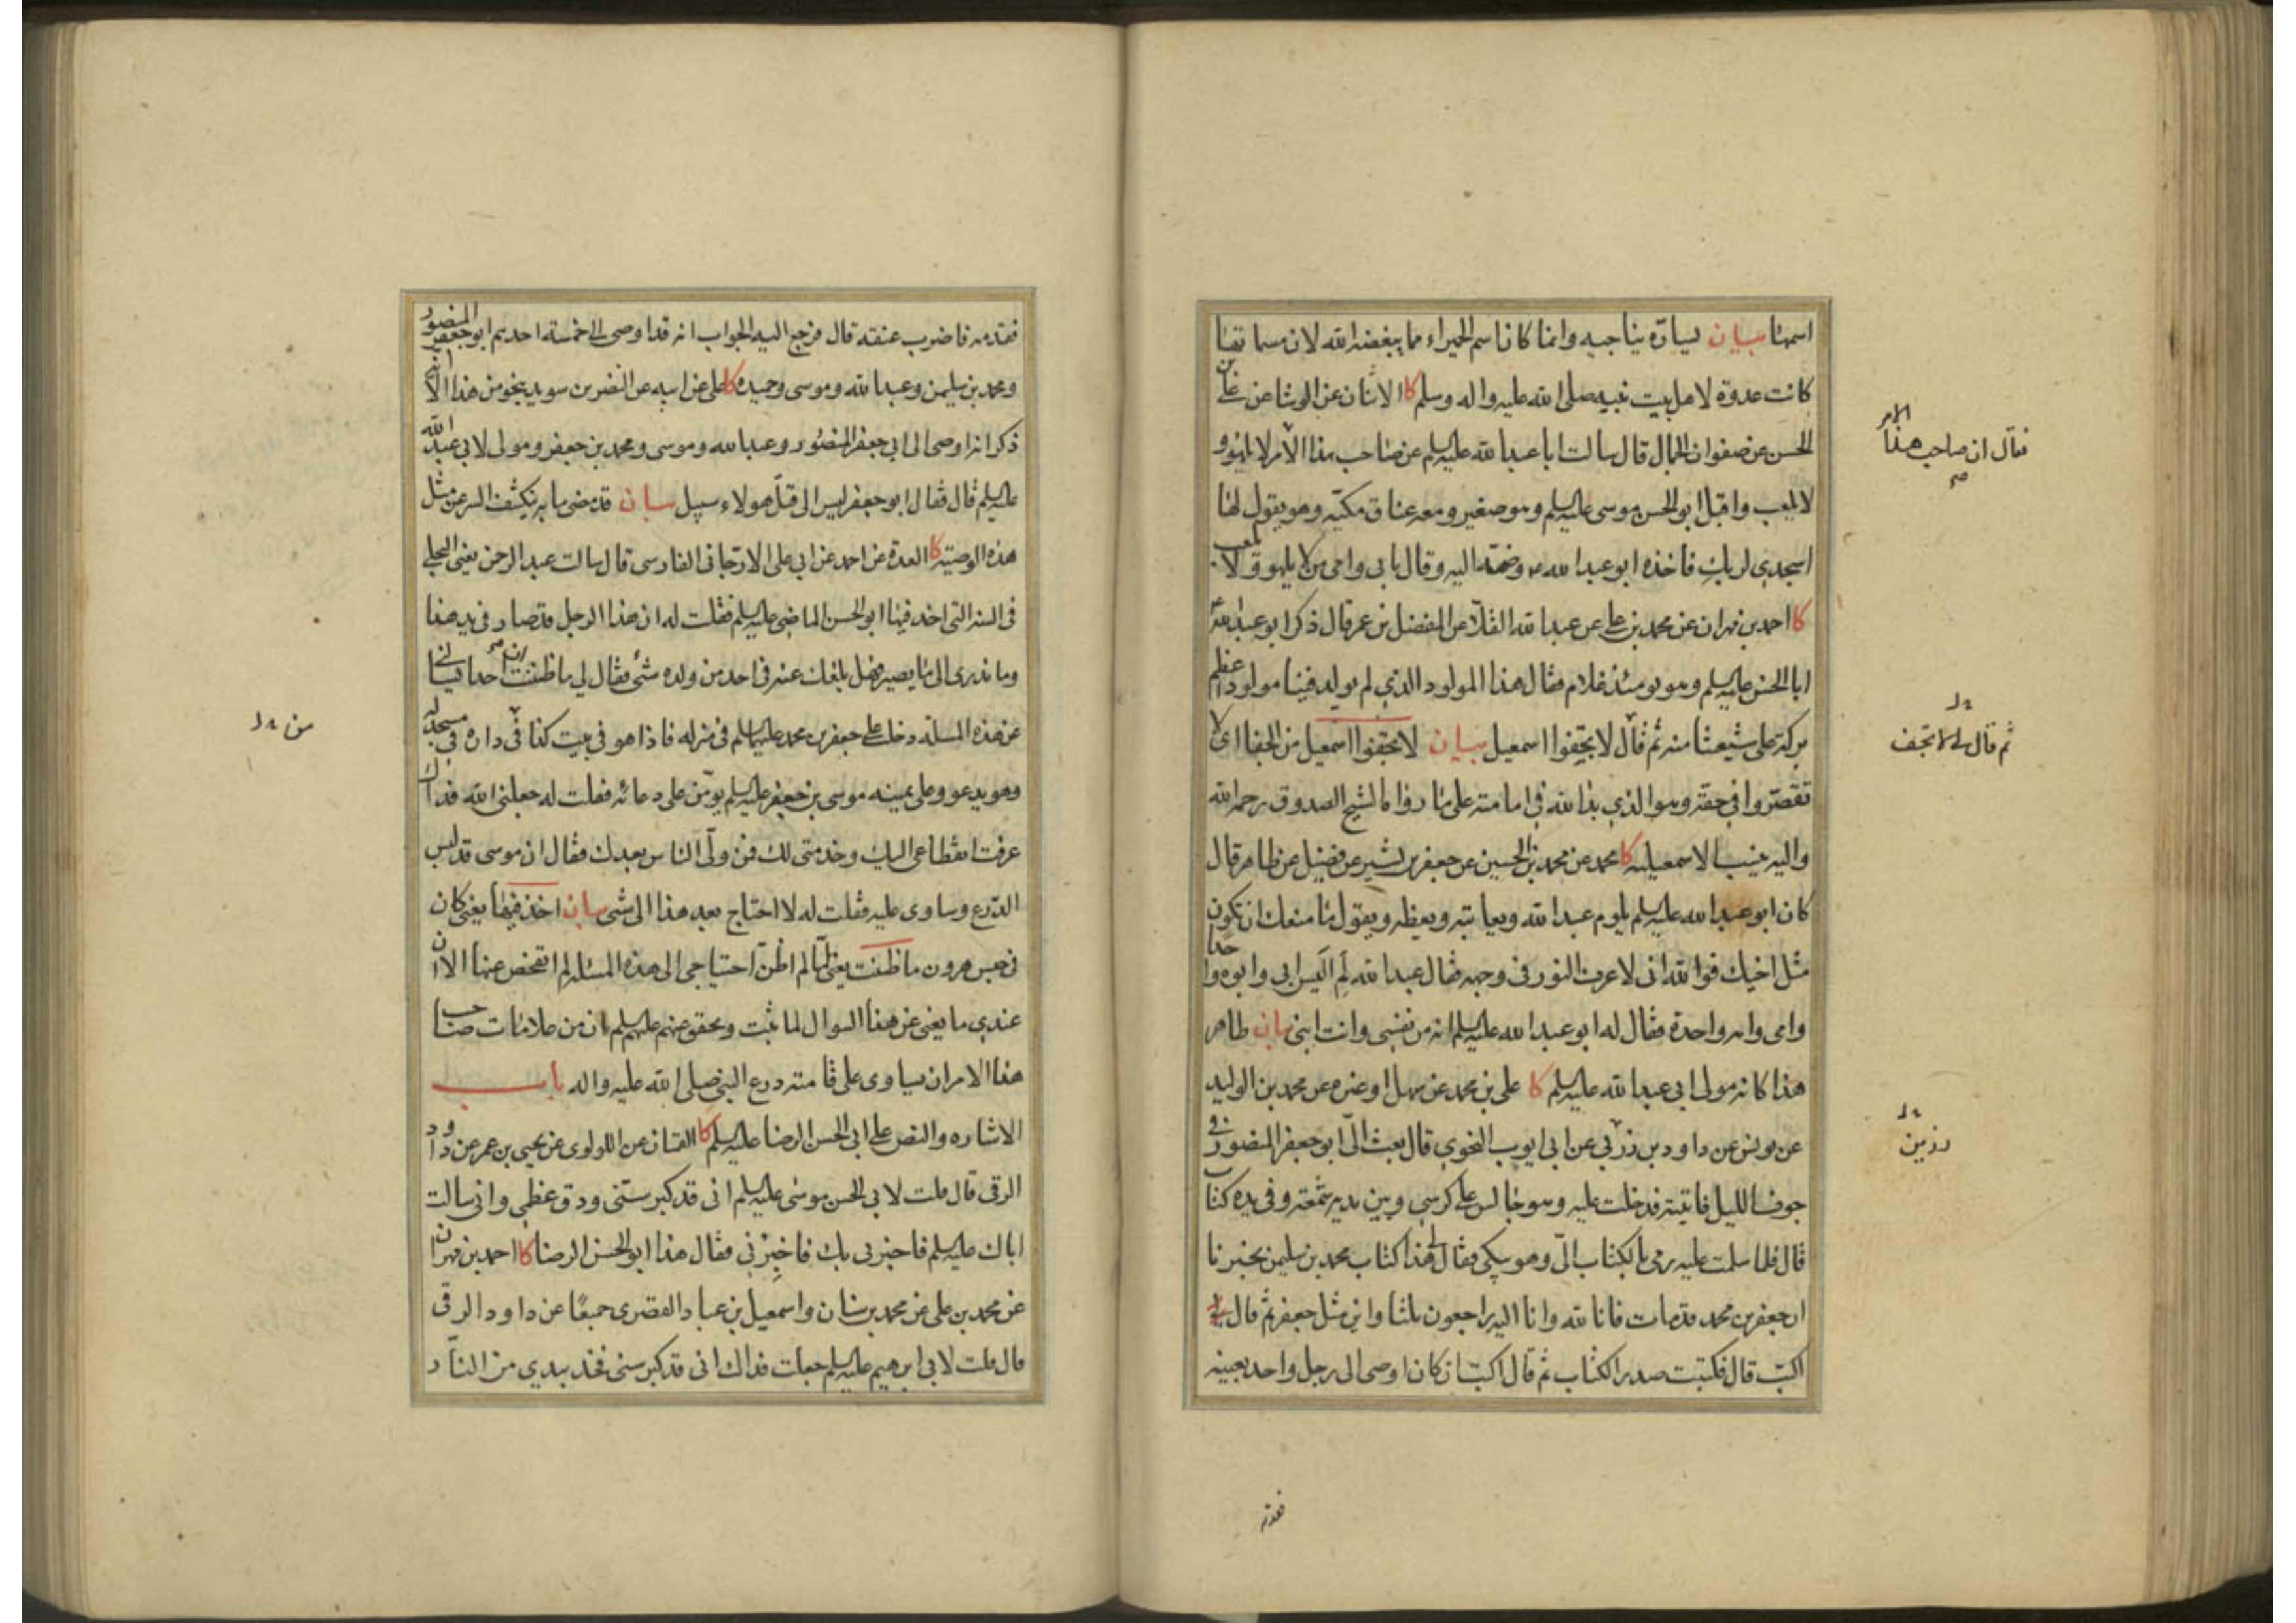 اسمها بيان يساره يناجيه وانما كان اسم الحميراء مما يبغضه الله لان مسماتها
كانت عدوة لاهل بيت نبيه صلى الله عليه واله وسلم كا الاثنان عن الوشا عن علي بن
الحسن عن صفوان الجمال قال سالت ابا عبد الله عليه السلم عن صاحب هذا الامر لا يلهو و
لا يلعب واقبل ابو الحسن موسى عليه السلم وهو صغير ومعه عناق مكيّه وهو يقول لها
اسجدي لربكِ فاخذه ابو عبد الله وضمه اليه وقال بابي وامي من لا يلهو ولا يلعب
كا احمد بن مهران عن محمد بن علي عن عبد الله القلا عن المفضل بن عمر قال ذكر ابو عبد الله
ابا الحسن عليه السلم وهو يومئذ غلام فقال هذا المولود الذي لم يولد فينا مولود اعظم
بركة على شيعتنا منه ثم قال لا تجفوا اسمعيل بيان لا تجفوا اسمعيل من الجفا اي لا
تقصّروا في حقه وهو الذي بدا لله في امامته على ما رواه الشيخ الصدوق رحمه الله
واليه ينسب الاسمعيليه كا محمد عن محمد بن الحسين عن جعفر بن بشير عن فضيل عن طاهر قال
كان ابو عبد الله عليه السلم يلوم عبد الله ويعاتبه ويعظه ويقول ما منعك ان تكون
مثل اخيك فوالله اني لاعرف النور في وجهه فقال عبد الله لِمَ اَليس ابي وابوه واحدا
وامي وامه واحدة فقال له ابو عبد الله عليه السلم انه من نفسي وانت ابني بيان طاهر
هذا كانه مولى ابي عبد الله عليه السلم كا علي بن محمد عن سهل او غيره عن محمد بن الوليد
عن يونس عن داود بن زربي عن ابي ايوب النحوي قال بعث الىّ ابو جعفر المنصور في
جوف الليل فاتيته فدخلت عليه وهو جالس على كرسي وبين يديه شمعة وفي يده كتاب
قال فلما سلمت عليه رمى بالكتاب الىّ وهو يبكي فقال لي هذا كتاب محمد بن سليمن يخبرنا
ان جعفر بن محمد قد مات فانا لله وانا اليه راجعون ثلثا واين مثل جعفر ثم قال لي
اكتب قال فكتبت صدر الكتاب ثم قال اكتب ان كان اوصى الى رجل واحد بعينه
فقال ان صاحب هذا الامر
ثم قال لي لا تجف
رزين
فقدمه
فقدمه فاضرب عنقه قال فرجع اليه الجواب انه قد اوصى الى خمسة احدهم ابو جعفر المنصور
ومحمد بن سليمن وعبد الله وموسى وحميده كا علي عن ابيه عن النضر بن سويد بنحو من هذا الا انه
ذكر انه اوصى الى ابي جعفر المنصور وعبد الله وموسى ومحمد بن جعفر ومولى لابي عبد الله
عليه السلم قال فقال ابو جعفر ليس الى قتل هولاء سبيل بيان قد مضى ما به ينكشف السر عن مثل
هذه الوصية كا العدة عن احمد عن ابي علي الارجاني الفارسي قال سالت عبد الرحمن يعني البجلي
في السنه التي اخذ فيها ابو الحسن الماضي عليه السلم فقلت له ان هذا الرجل قد صار في يد هذا
وما ندري الى ما يصير فهل بلغك عنه في احد من ولده شئ فقال لي ما ظننت ان احدا يسالني
عن هذه المسئلة دخلت على جعفر بن محمد عليهما السلم في منزله فاذا هو في بيت كذا في داره في مسجد له
وهو يدعو وعلى يمينه موسى بن جعفر عليه السلم يومّن على دعائه فقلت له جعلني الله فداك
عرفت انقطاعي اليك وخدمتي لك فمن ولّى الناس بعدك فقال ان موسى قد لبس
الدّرع وساوى عليه فقلت له لا احتاج بعد هذا الى شئ بيان اخذ فيها يعني كان
في حبس هرون ما ظننت يعني لما لم اظن احتياجي الى هذه المسئله لم اتفحص عنها الا ان
عندي ما يغني عن هذا السوال لما ثبت وتحقق منهم عليهم السلم ان من علامات صاحب
هذا الامر ان يساوى على قامته درع النبي صلى الله عليه واله باب
الاشاره والنص على ابي الحسن الرضا عليه السلم كا القميان عن اللولوي عن يحيى بن عمر عن داود
الرقي قال قلت لابي الحسن موسى عليه السلم اني قد كبر سنّي ودق عظمي واني سالت
اباك عليه السلم فاخبرني بك فاخبِرْني فقال هذا ابو الحسن الرضا كا احمد بن مهران
عن محمد بن علي عن محمد بن سنان واسمعيل بن عباد القصري جميعًا عن داود الرقي
قال قلت لابي ابرهيم عليه السلم جعلت فداك اني قد كبر سني فخذ بيدي من النار